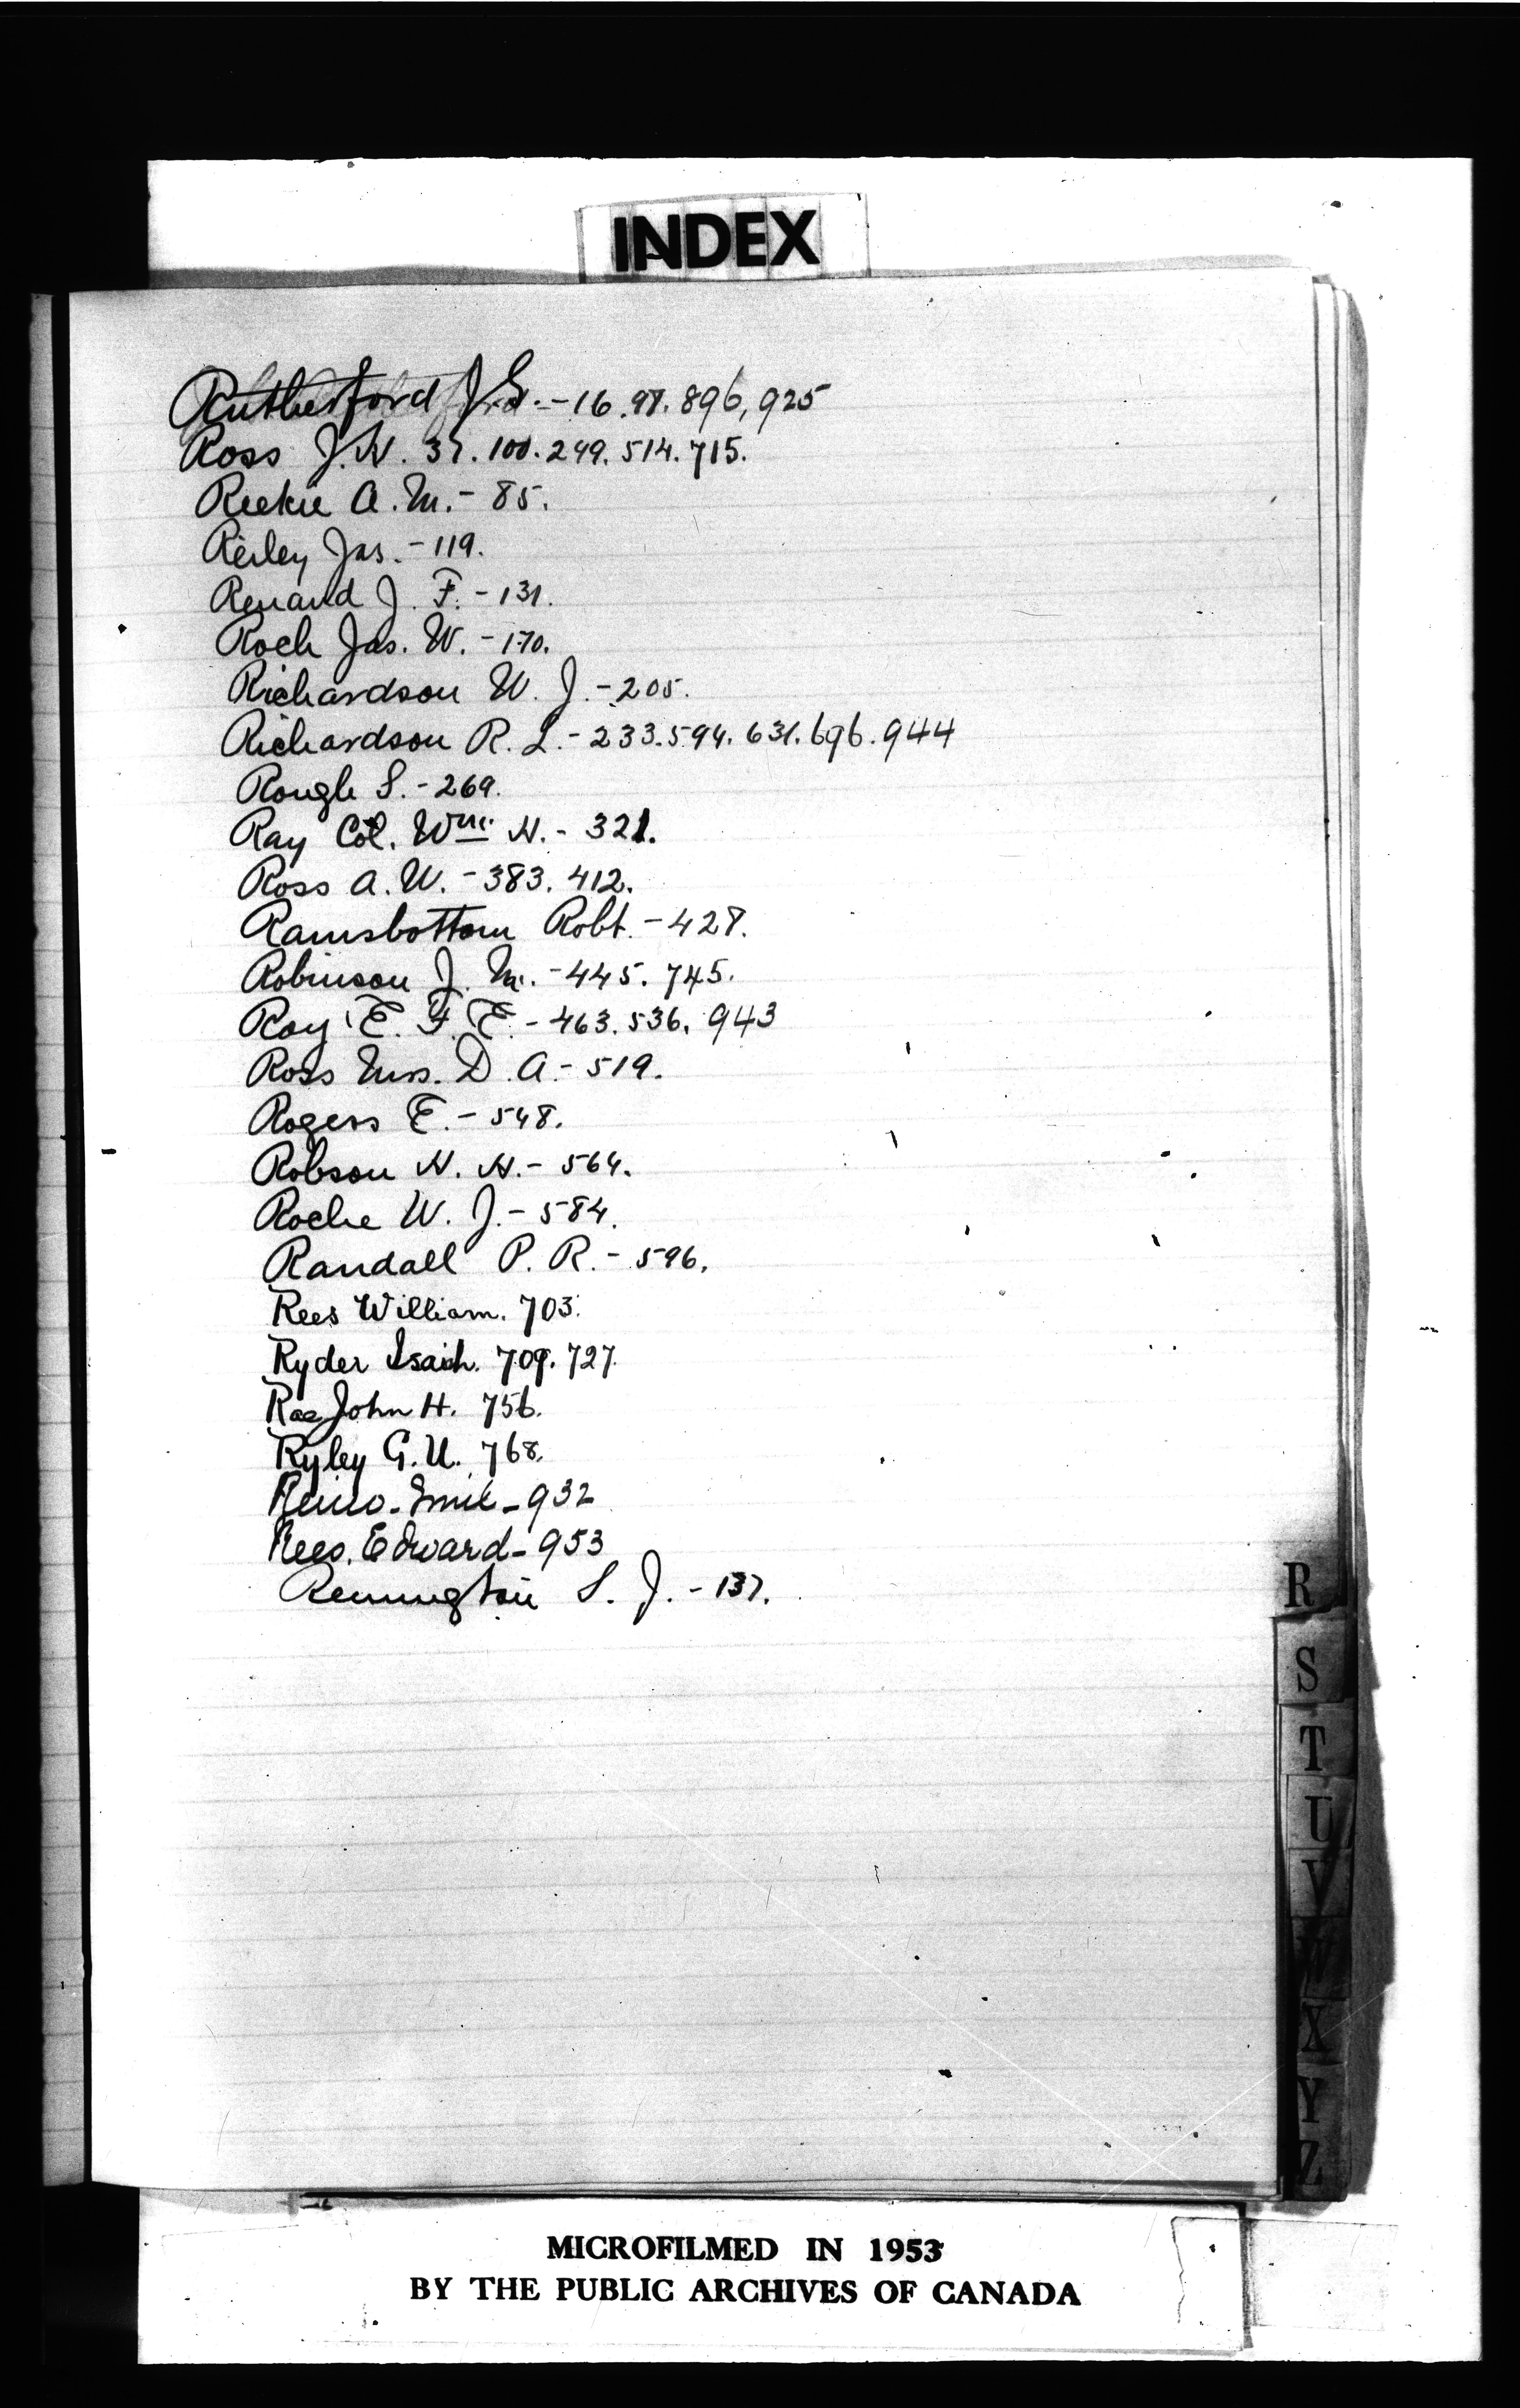 INDEX
Rutherford J. G. - 16. 97. 896, 925
Ross J. H. 37. 100. 249. 514. 715.
Reekie A. M. - 85.
Reiley Jas. - 119.
Renaud J. F. - 131.
Roch Jas. W. - 170.
Richardson W. J. - 205.
Richardson R. L. - 233. 594. 631. 696. 944
Rough S. - 269.
Ray Col. Wm H. - 321.
Ross A. W. - 383. 412.
Ramsbottom Robt. - 428.
Robinson J. M. - 445. 745.
Roy E. F. E. - 463. 536. 943
Ross Mrs. D. A. - 519.
Rogers E. - 548.
Robson H. H. - 564.
Roche W. J. - 584.
Randall P. R. - 596.
Rees William. 703.
Ryder Isaih. 709. 727.
Rae John H. 756.
Ryley G. U. 768.
Emil - 932
Rees. Edward - 953
Remington S. J. - 137.
R
S
T
U
V
W
X
Y
Z
MICROFILMED IN 1953
BY THE PUBLIC ARCHIVES OF CANADA